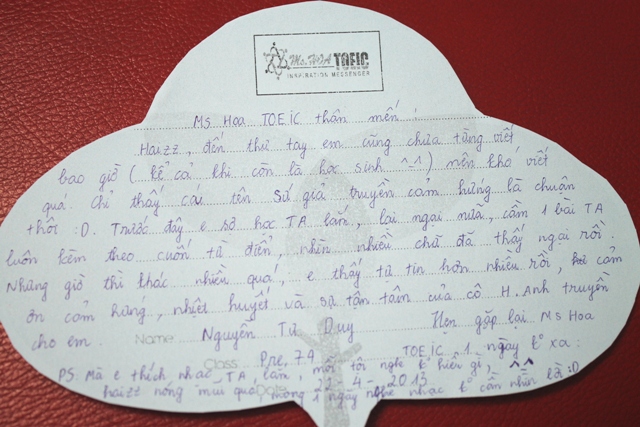 Ms. HOA TOEIC
INSPIRATION MESSENGER
Ms Hoa TOEIC thân mến !
Haizz, đến thư tay em cũng chưa từng viết
bao giờ ( kể cả khi còn là học sinh ^=1 ) nên khó viết
quá. Chỉ thấy cái tên Sứ giả truyền cảm hứng là chuẩn
thôi :D. Trước đây e sợ học TA lắm, lại ngại nữa, cầm 1 bài TA
luôn kèm theo cuốn từ điển, nhìn nhiều chữ đã thấy ngại rồi.
Nhưng giờ thì khác nhiều quá, e thấy tự tin hơn nhiều rồi, cảm
ơn cảm hứng, nhiệt huyết và sự tận tâm của cô H. Anh truyền
cho em. Name: Nguyễn Tử Duy Hẹn gặp lại Ms Hoa
Class: Pre 74 TOEIC 1 ngày k° xa :
PS. Mà e thích nhạc TA lắm, mỗi tội nghe k° hiểu gì, ^^
haizz nóng mùi quá Date 22-4-2013 mong 1 ngày nghe nhạc k° cần nhìn lời :D